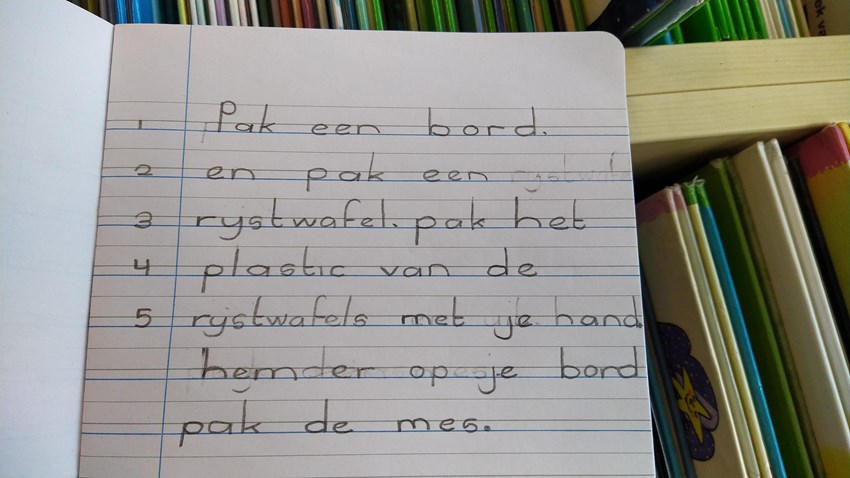 1 Pak een bord.
2 en pak een
3 rystwafel. pak het
4 plastic van de
5 rijstwafels met je hand
hemder op je bord
pak de mes.